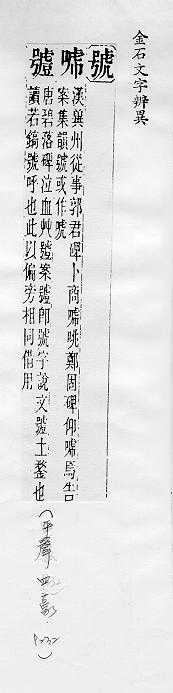 金石文字辨異
號 嘑
漢冀州從事郭君碑卜商嘑咷鄭固碑仰嘑焉告
案集韻號或作嘑
唐碧落碑泣血艸 案 即號字說文 土鍪也
讀若鎬號呼也此以偏旁相同借用
(平聲 四豪 p232)